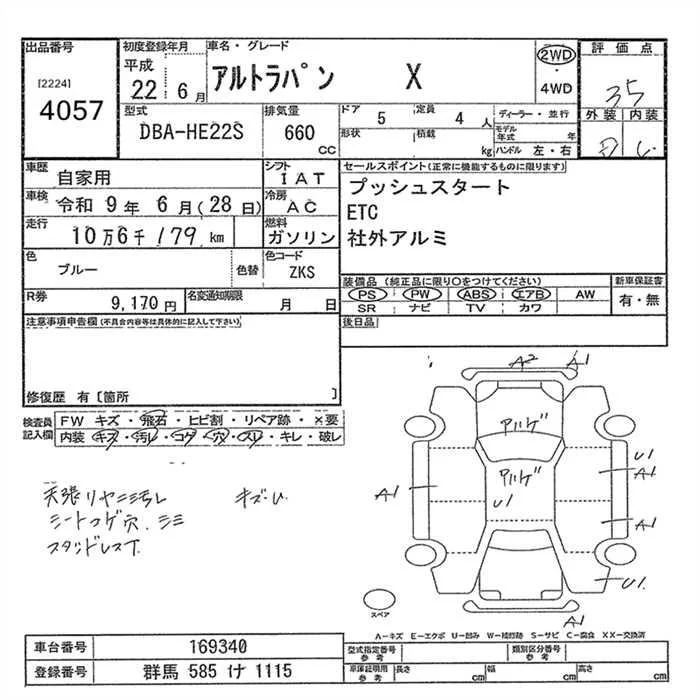 出品番号
[2224]
4057
初度登録年月
平成
22 6 月
車名・グレード
アルトラパン X
2WD
・
4WD
評価点
35
外装 内装
型式
DBA-HE22S
排気量
660
CC
ドア 5
定員 4 人
形状
積載 kg
ディーラー・並行
モデル年式 年
ハンドル 左・右
車歴
自家用
シフト
IAT
車検
令和 9 年 6 月 (28 日)
冷房
AC
走行
10 万 6 千 179 km
燃料
ガソリン
色
ブルー
色替
色コード
ZKS
R券
9,170 円
名変通知期限
月 日
セールスポイント(正常に機能するものに限ります)
プッシュスタート
ETC
社外アルミ
装備品 (純正品に限り○をつけてください)
新車保証書
PS PW ABS エアB AW
有・無
SR ナビ TV カワ
後日品
注意事項申告欄(不具合内容等は具体的に記入して下さい)
修復歴 有 [箇所 ]
検査員記入欄
FW キズ・飛石・ヒビ割・リペア跡・×要
内装・キズ・汚レ・コゲ・穴・スレ・キレ・破レ
天張リヤニ汚レ
キズU
シートコゲ穴.シミ
スタンドレスT
A2
A1
ハゲ
ハゲ
U1
A1
U1
A1
A1
U1
A1
スペア
A-キズ E-エクボ U-凹み W-補修跡 S-サビ C-腐食 XX-交換済
車台番号 169340
登録番号 群馬 585 け 1115
型式指定番号
参考
類別区分番号
参考
車庫証明用
参考
長さ cm
幅 cm
高さ cm